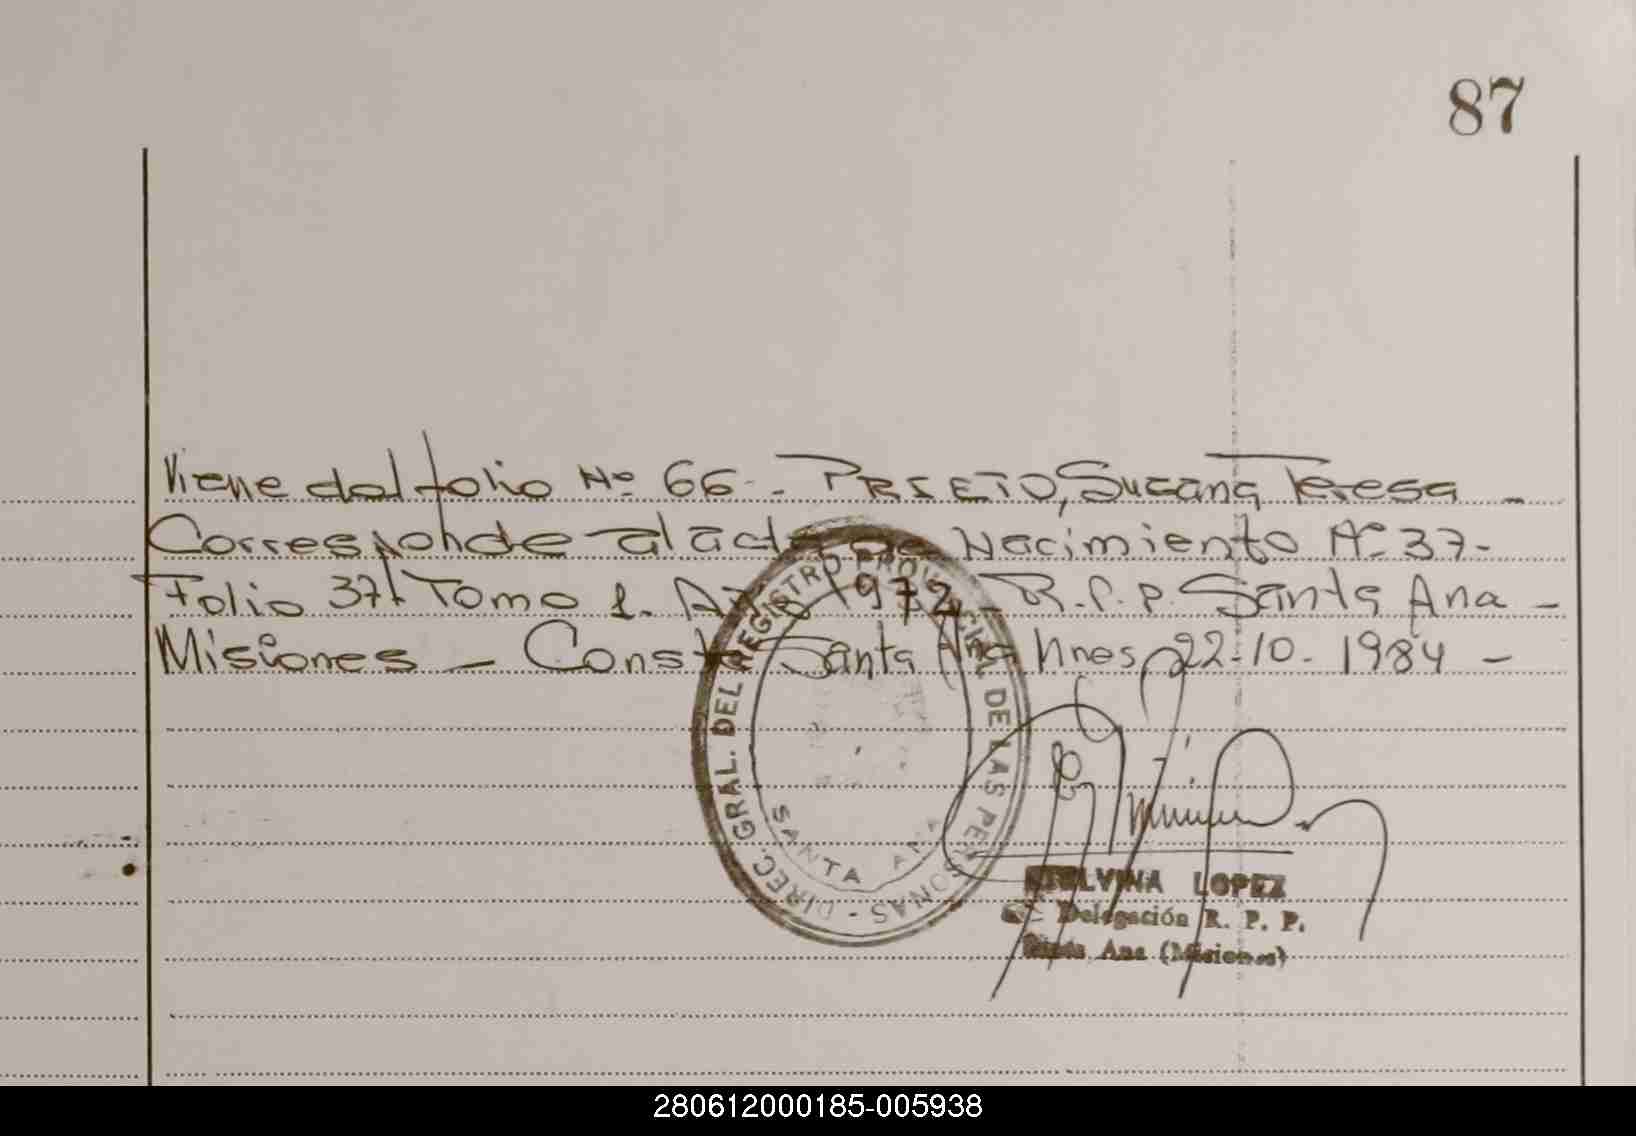 87
Viene del folio Nº 66-. PRIETO, Susana Teresa -
Corresponde al acta de Nacimiento Nº 37-
Folio 37. Tomo 1. Año 1972 - R.P.P. Santa Ana -
Misiones - Conste Santa Ana Mnes, 22-10-1984 -
DIREC. GRAL. DEL REGISTRO PROVINCIAL DE LAS PERSONAS -
SANTA ANA
ETELVINA LOPEZ
Delegación R. P. P.
Santa Ana (Misiones)
280612000185-005938